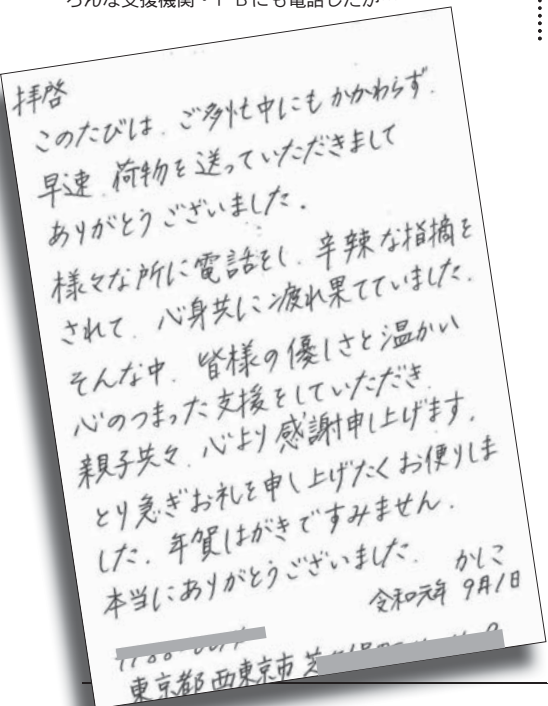 ろんな支援機関・FBにも電話したが
拝啓
このたびは、ご多忙中にもかかわらず、
早速、荷物を送っていただきまして
ありがとうございました。
様々な所に電話をし、辛辣な指摘を
されて、心身共に疲れ果てていました。
そんな中、皆様の優しさと温かい
心のつまった支援をしていただき、
親子共々、心より感謝申し上げます。
とり急ぎお礼を申し上げたくお便りしま
した。年賀はがきですみません。
本当にありがとうございました。 かしこ
令和元年 9月1日
東京都西東京市